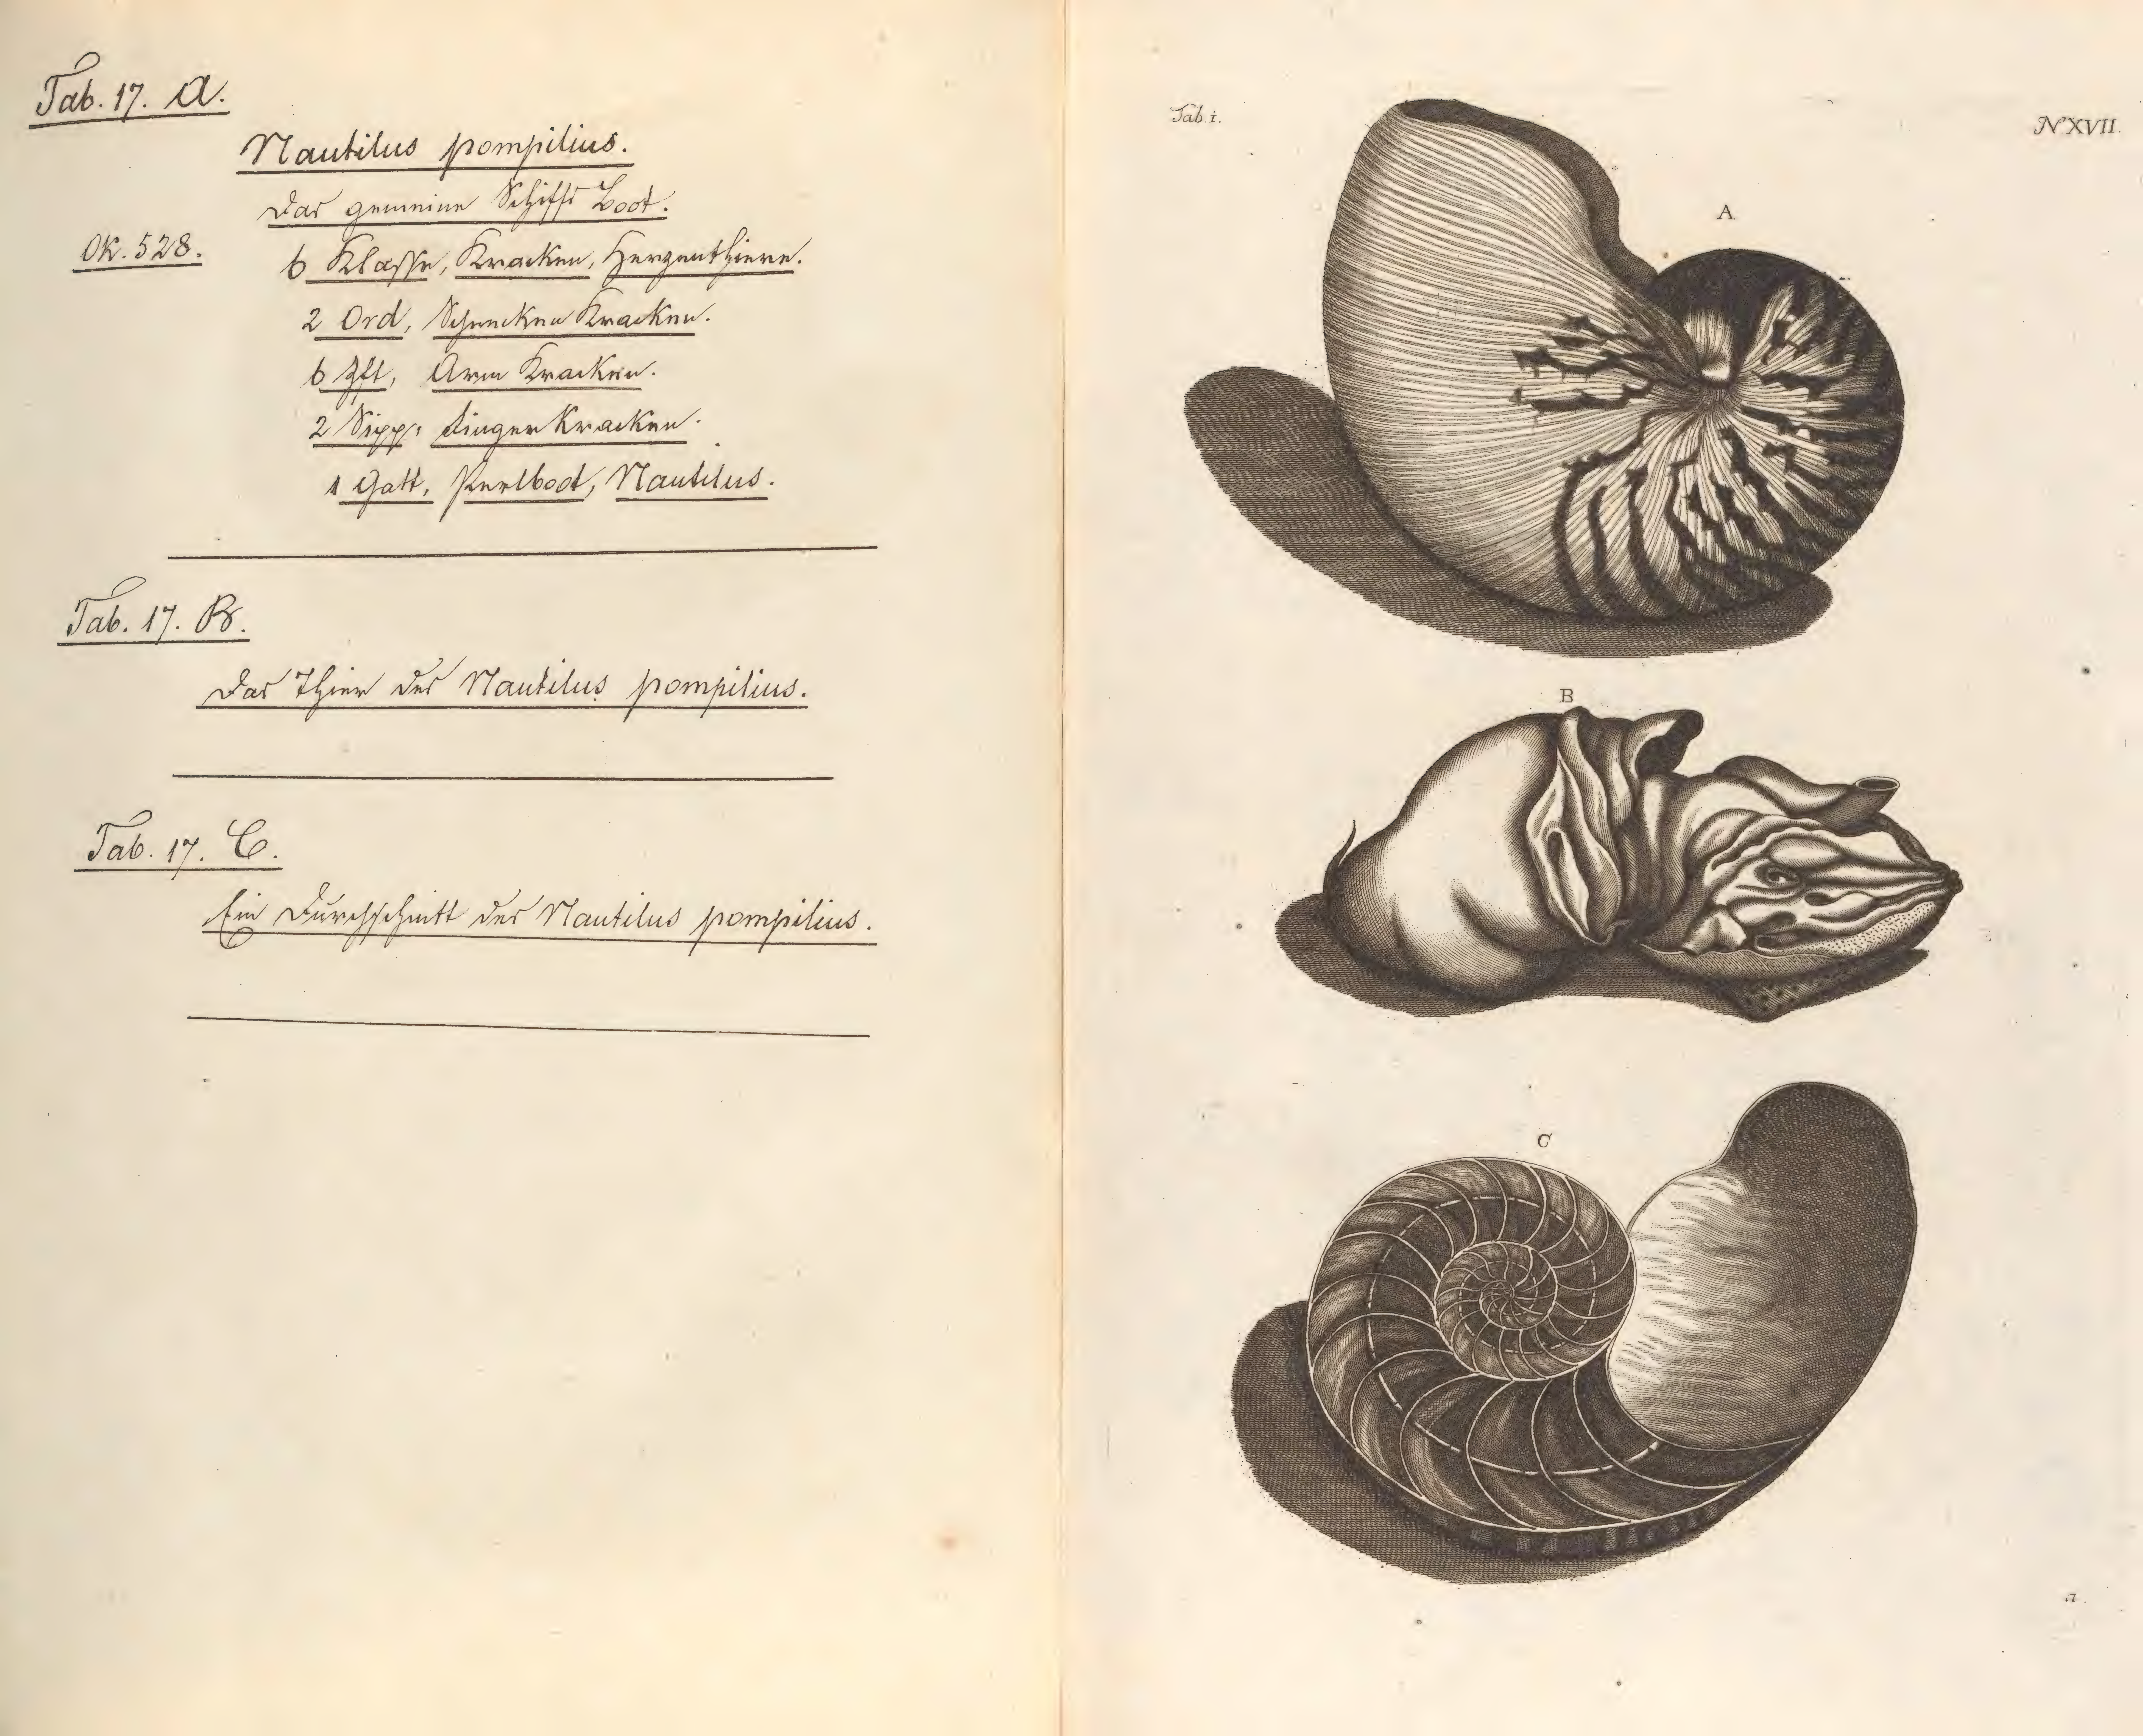 Tab. 17. A.
Nautilus pompilius.
Das gemeine Schiffs Boot.
Ok. 528.
6 Klasse, Kracken, Herzenthiere.
2 Ord, Schnecken Kracken.
6 Zft, Arm Kracken.
2 Sipp: Fingerkracken.
1 Gatt, Perlboot, Nautilus.
Tab. 17. B.
Das Thier des Nautilus pompilius.
Tab. 17. C.
Ein Durchschnitt des Nautilus pompilius.
Tab. i.
N. XVII.
A
B
C
a.